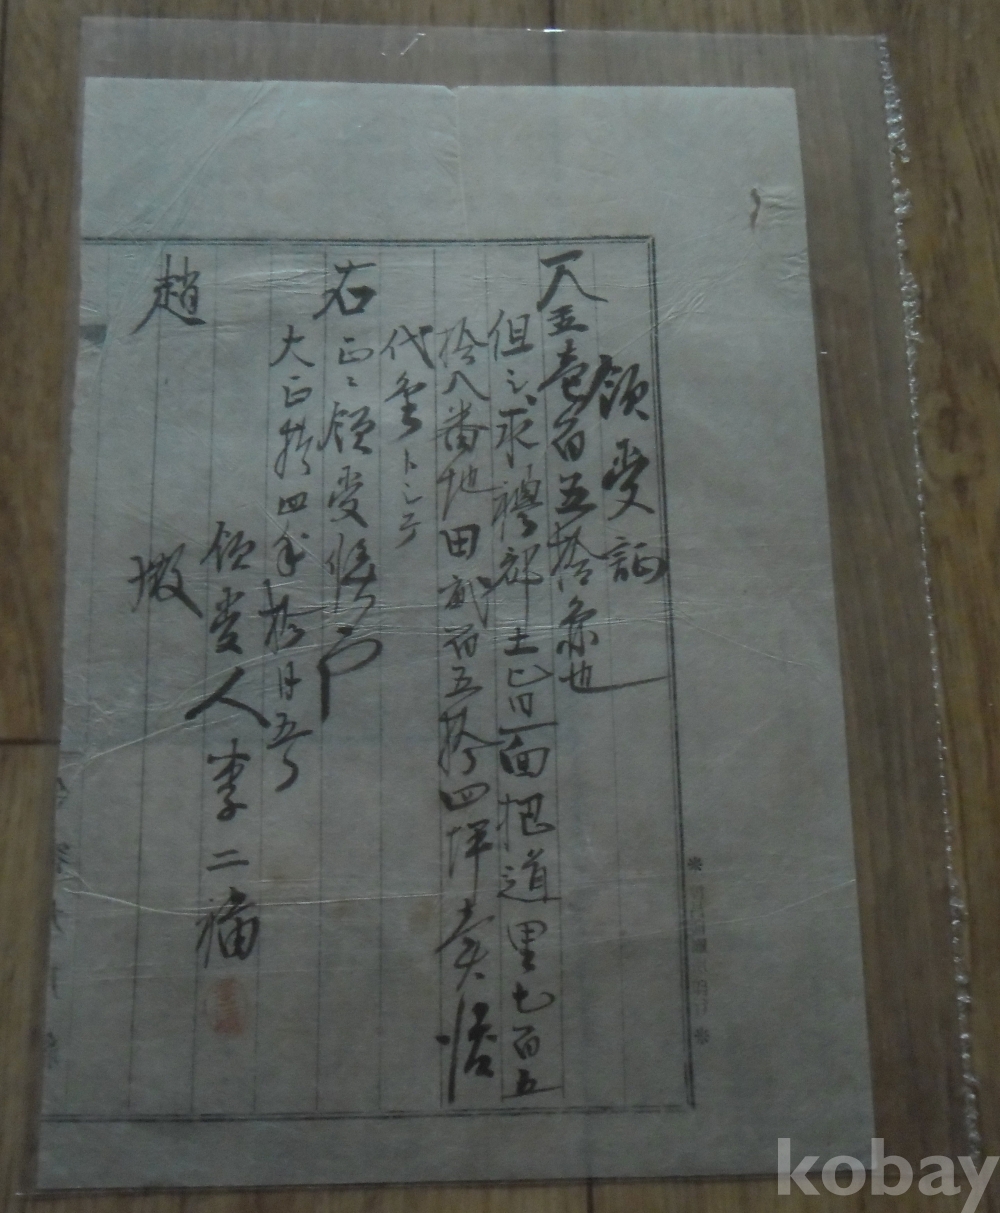 領受証
一金壱百五拾円也
但シ永禮郡土 面把道里七百五
拾八番地田貳百五拾四坪賣渡
代金トシテ
右正ニ領受候也
大正拾四年拾月五日
領受人 李二福
趙 殿
kobay